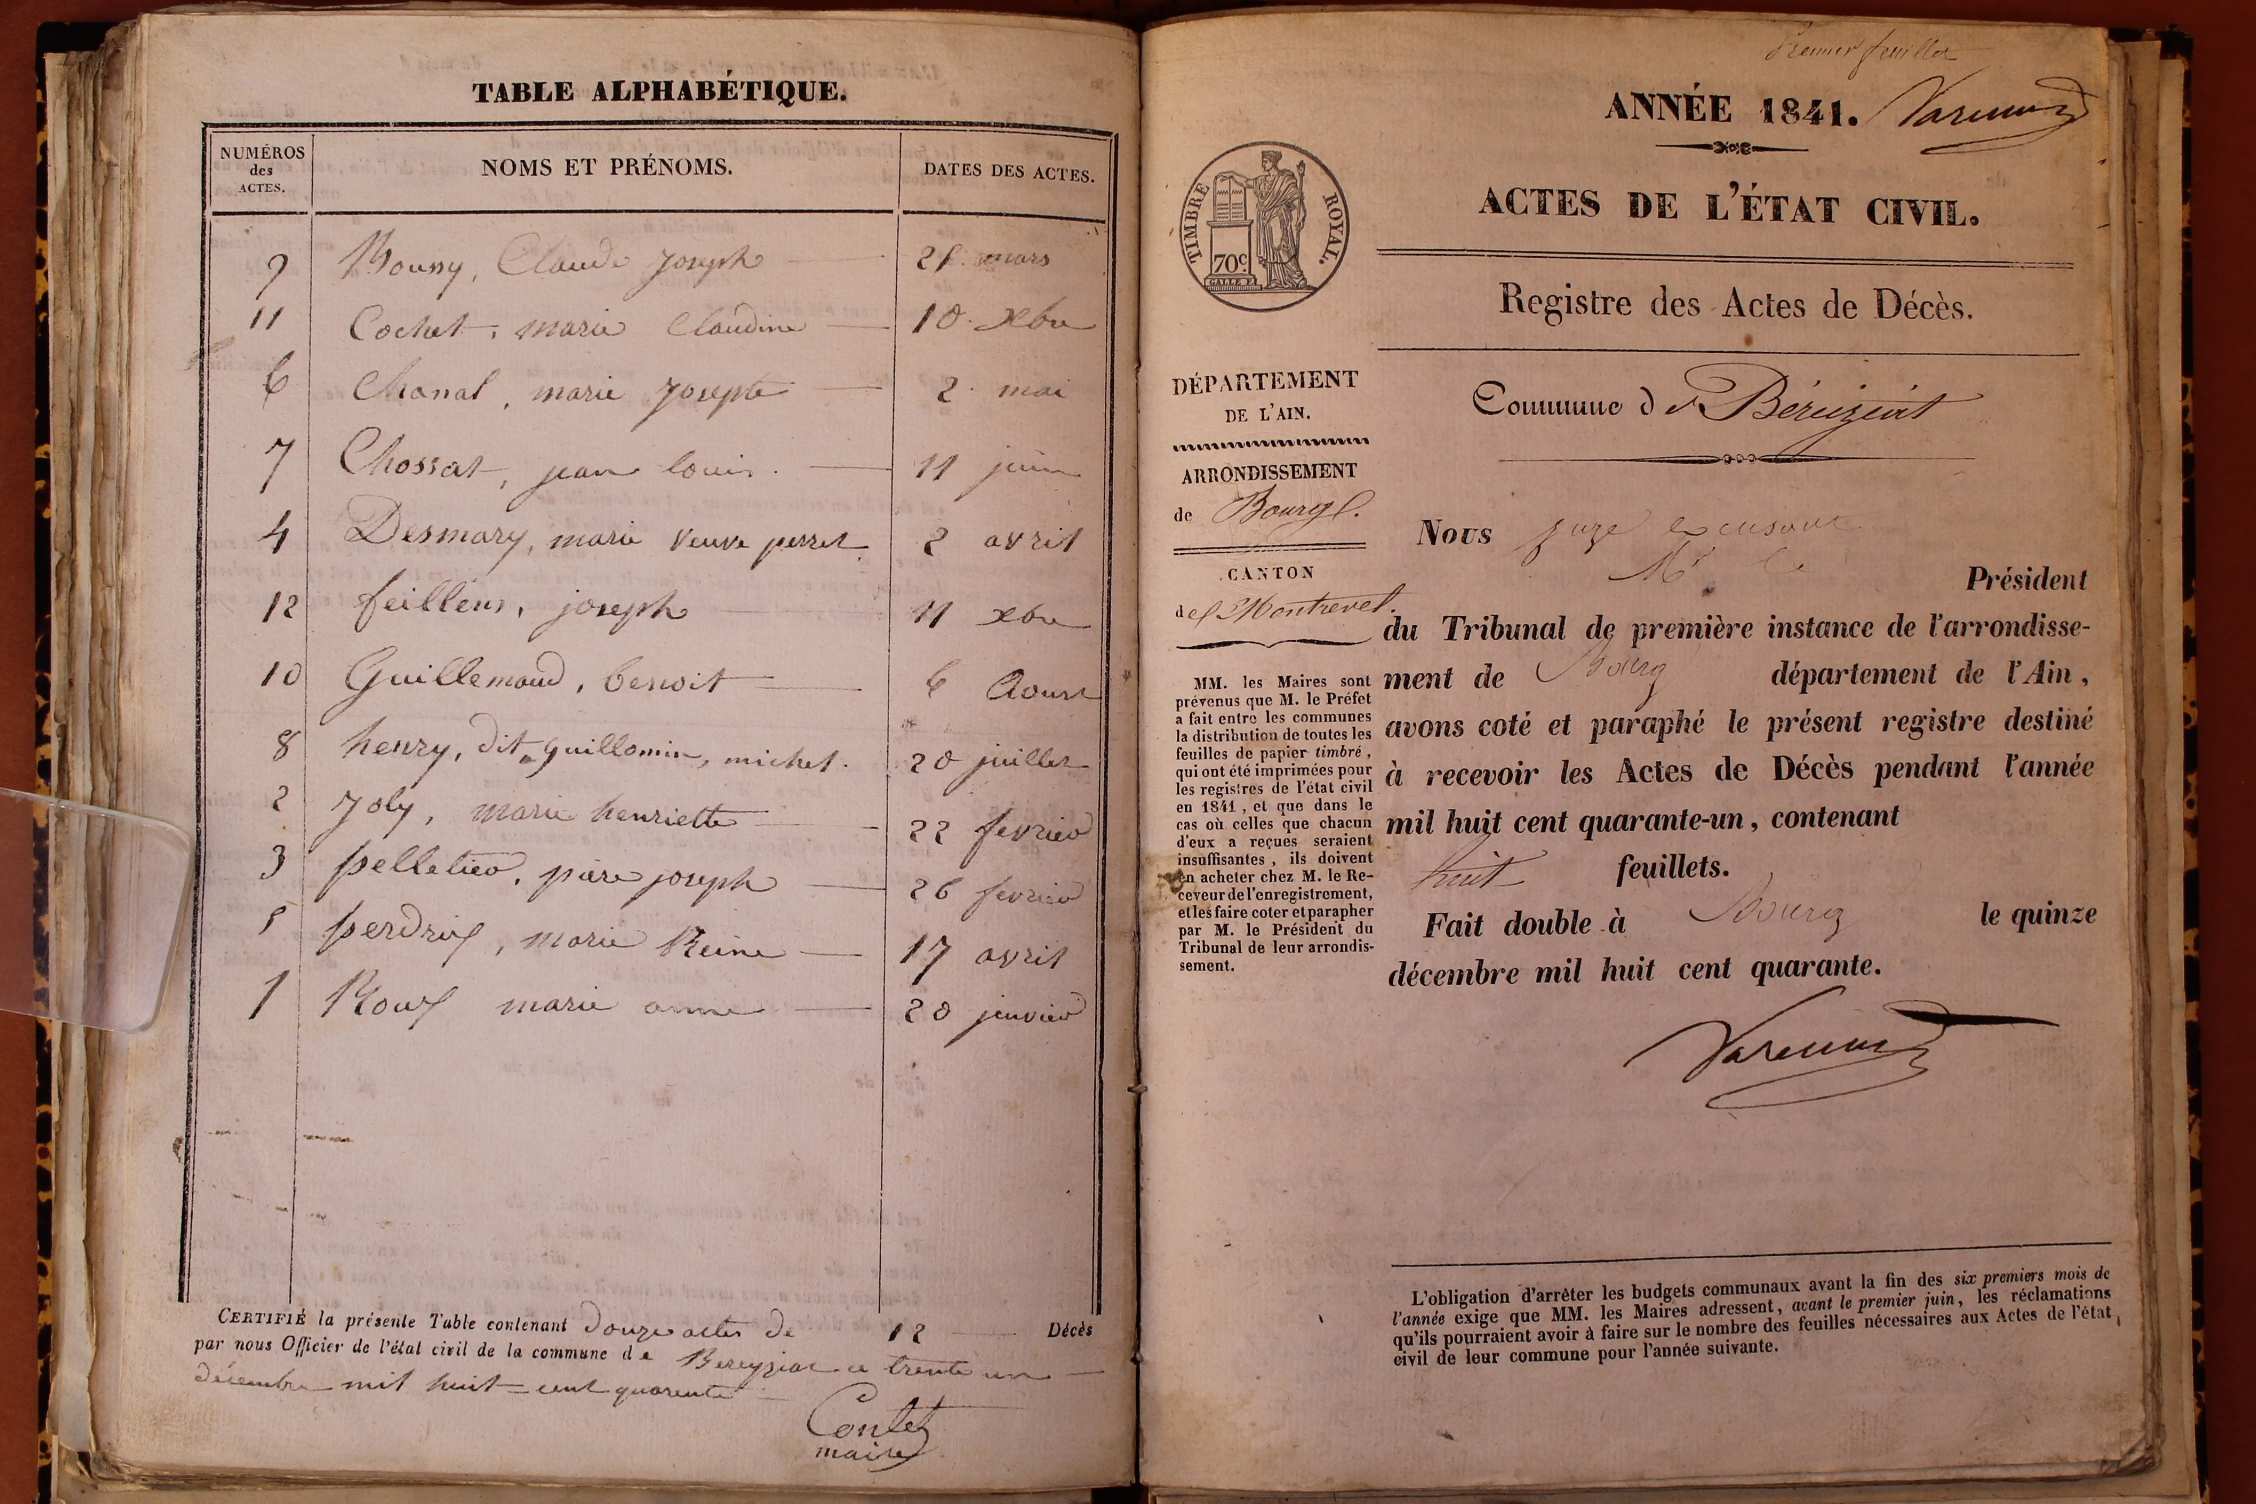 TABLE ALPHABÉTIQUE.
NUMÉROS des ACTES. NOMS ET PRÉNOMS. DATES DES ACTES.
9 Claude joseph mars
11 Cochet, marie Claudine 10 Xbre
6 Chanal, marie josephte 2 mai
7 Chossat, jean louis. 11 juin
4 Desmary, marie veuve perret 2 avril
12 feillens, joseph 11 xbre
10 Guillemaud, benoit 6 Aoust
8 henry, dit guillomin, michel. 20 juillet
2 Joly, marie henriette 22 fevrier
3 pelletier, pierre joseph 26 fevrier
5 perdrix, marie Reine 17 avril
1 Roux marie anne 20 janvier
CERTIFIÉ la présente Table contenant douze actes de 12 Décès
par nous Officier de l'état civil de la commune de Bereyziat ce trente un
décembre mil huit-cent quarente
Contet
maire
Premier feuillet
ANNÉE 1841.
ACTES DE L'ÉTAT CIVIL.
TIMBRE ROYAL.
70c.
Registre des Actes de Décès.
DÉPARTEMENT
DE L'AIN.
ARRONDISSEMENT
de Bourg.
CANTON
de Montrevel.
MM. les Maires sont
prévenus que M. le Préfet
a fait entre les communes
la distribution de toutes les
feuilles de papier timbré,
qui ont été imprimées pour
les registres de l'état civil
en 1841, et que dans le
cas où celles que chacun
d'eux a reçues seraient
insuffisantes, ils doivent
en acheter chez M. le Re-
ceveur de l'enregistrement,
et les faire coter et parapher
par M. le Président du
Tribunal de leur arrondis-
sement.
Commune de Béréziat
Nous juge excusant
Mr le Président
du Tribunal de première instance de l'arrondisse-
ment de Bourg département de l'Ain,
avons coté et paraphé le présent registre destiné
à recevoir les Actes de Décès pendant l'année
mil huit cent quarante-un, contenant
huit feuillets.
Fait double à Bourg le quinze
décembre mil huit cent quarante.
L'obligation d'arrêter les budgets communaux avant la fin des six premiers mois de
l'année exige que MM. les Maires adressent, avant le premier juin, les réclamations
qu'ils pourraient avoir à faire sur le nombre des feuilles nécessaires aux Actes de l'état
civil de leur commune pour l'année suivante.